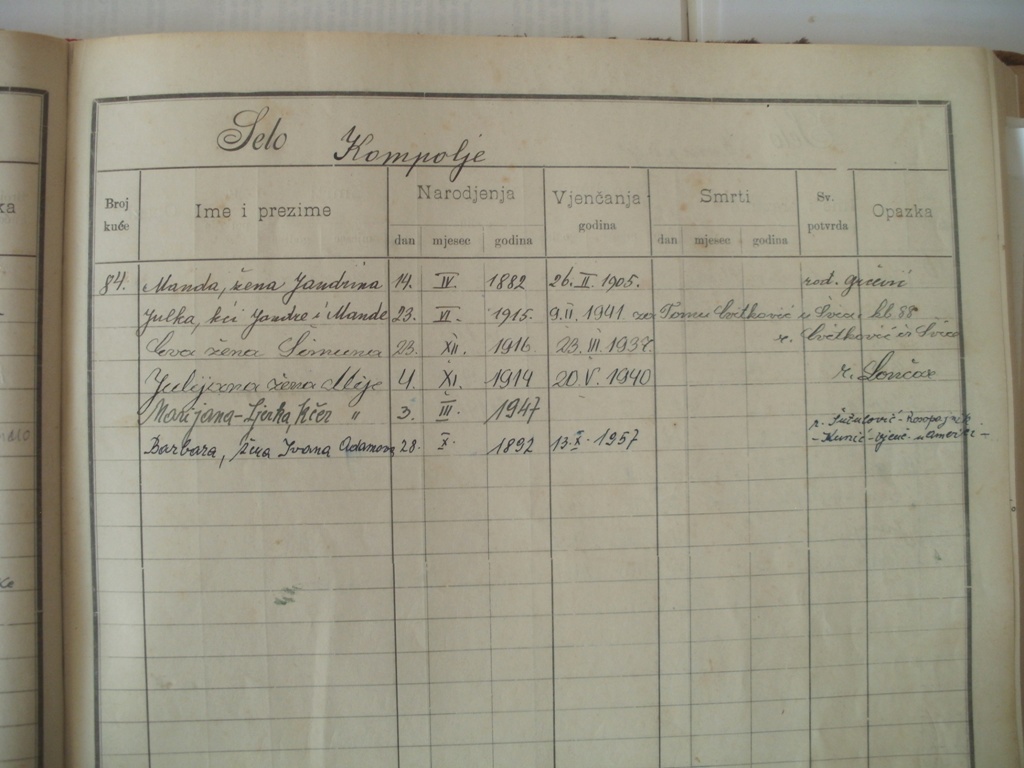 Selo Kompolje
Broj kuće Ime i prezime Narodjenja Vjenčanja godina Smrti Sv. potvrda Opazka
dan mjesec godina dan mjesec godina
84. Manda, žena Jandrina 14. IV. 1882 26. II. 1905. rod.
Julka, kći Jandre i Mande 23. VI. 1915. 9.II. 1941 za Tomu Cvitković iz Švica kb. 88
žena Šimuna 23. XII. 1916. 23. III. 1937. r. Cvitković iz Švice
Julijana žena Mije 4. XI. 1914 20. V. 1940 r. Lončar
Marijana-Ljerka, kćer " 3. III. 1947
Barbara, žena Ivana Adamova 28. X. 1892 13. X. 1957 r.
- Kunić - vjenč. u Americi -